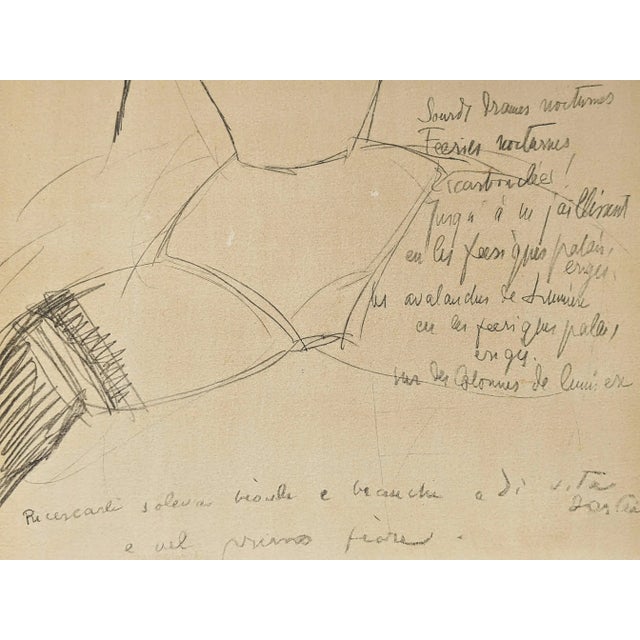 Sourds Drames nocturnes
Feeries nocturnes
Escarbouclées!
Jusqu'à un jaillissent
en les feeriques palais
erigés.
les avalanches de Lumière
en les feeriques palais,
erigés.
sur des Colonnes de lumière
Ricercarli soleva bionde e bianche e di vita
e nel primo fiore.